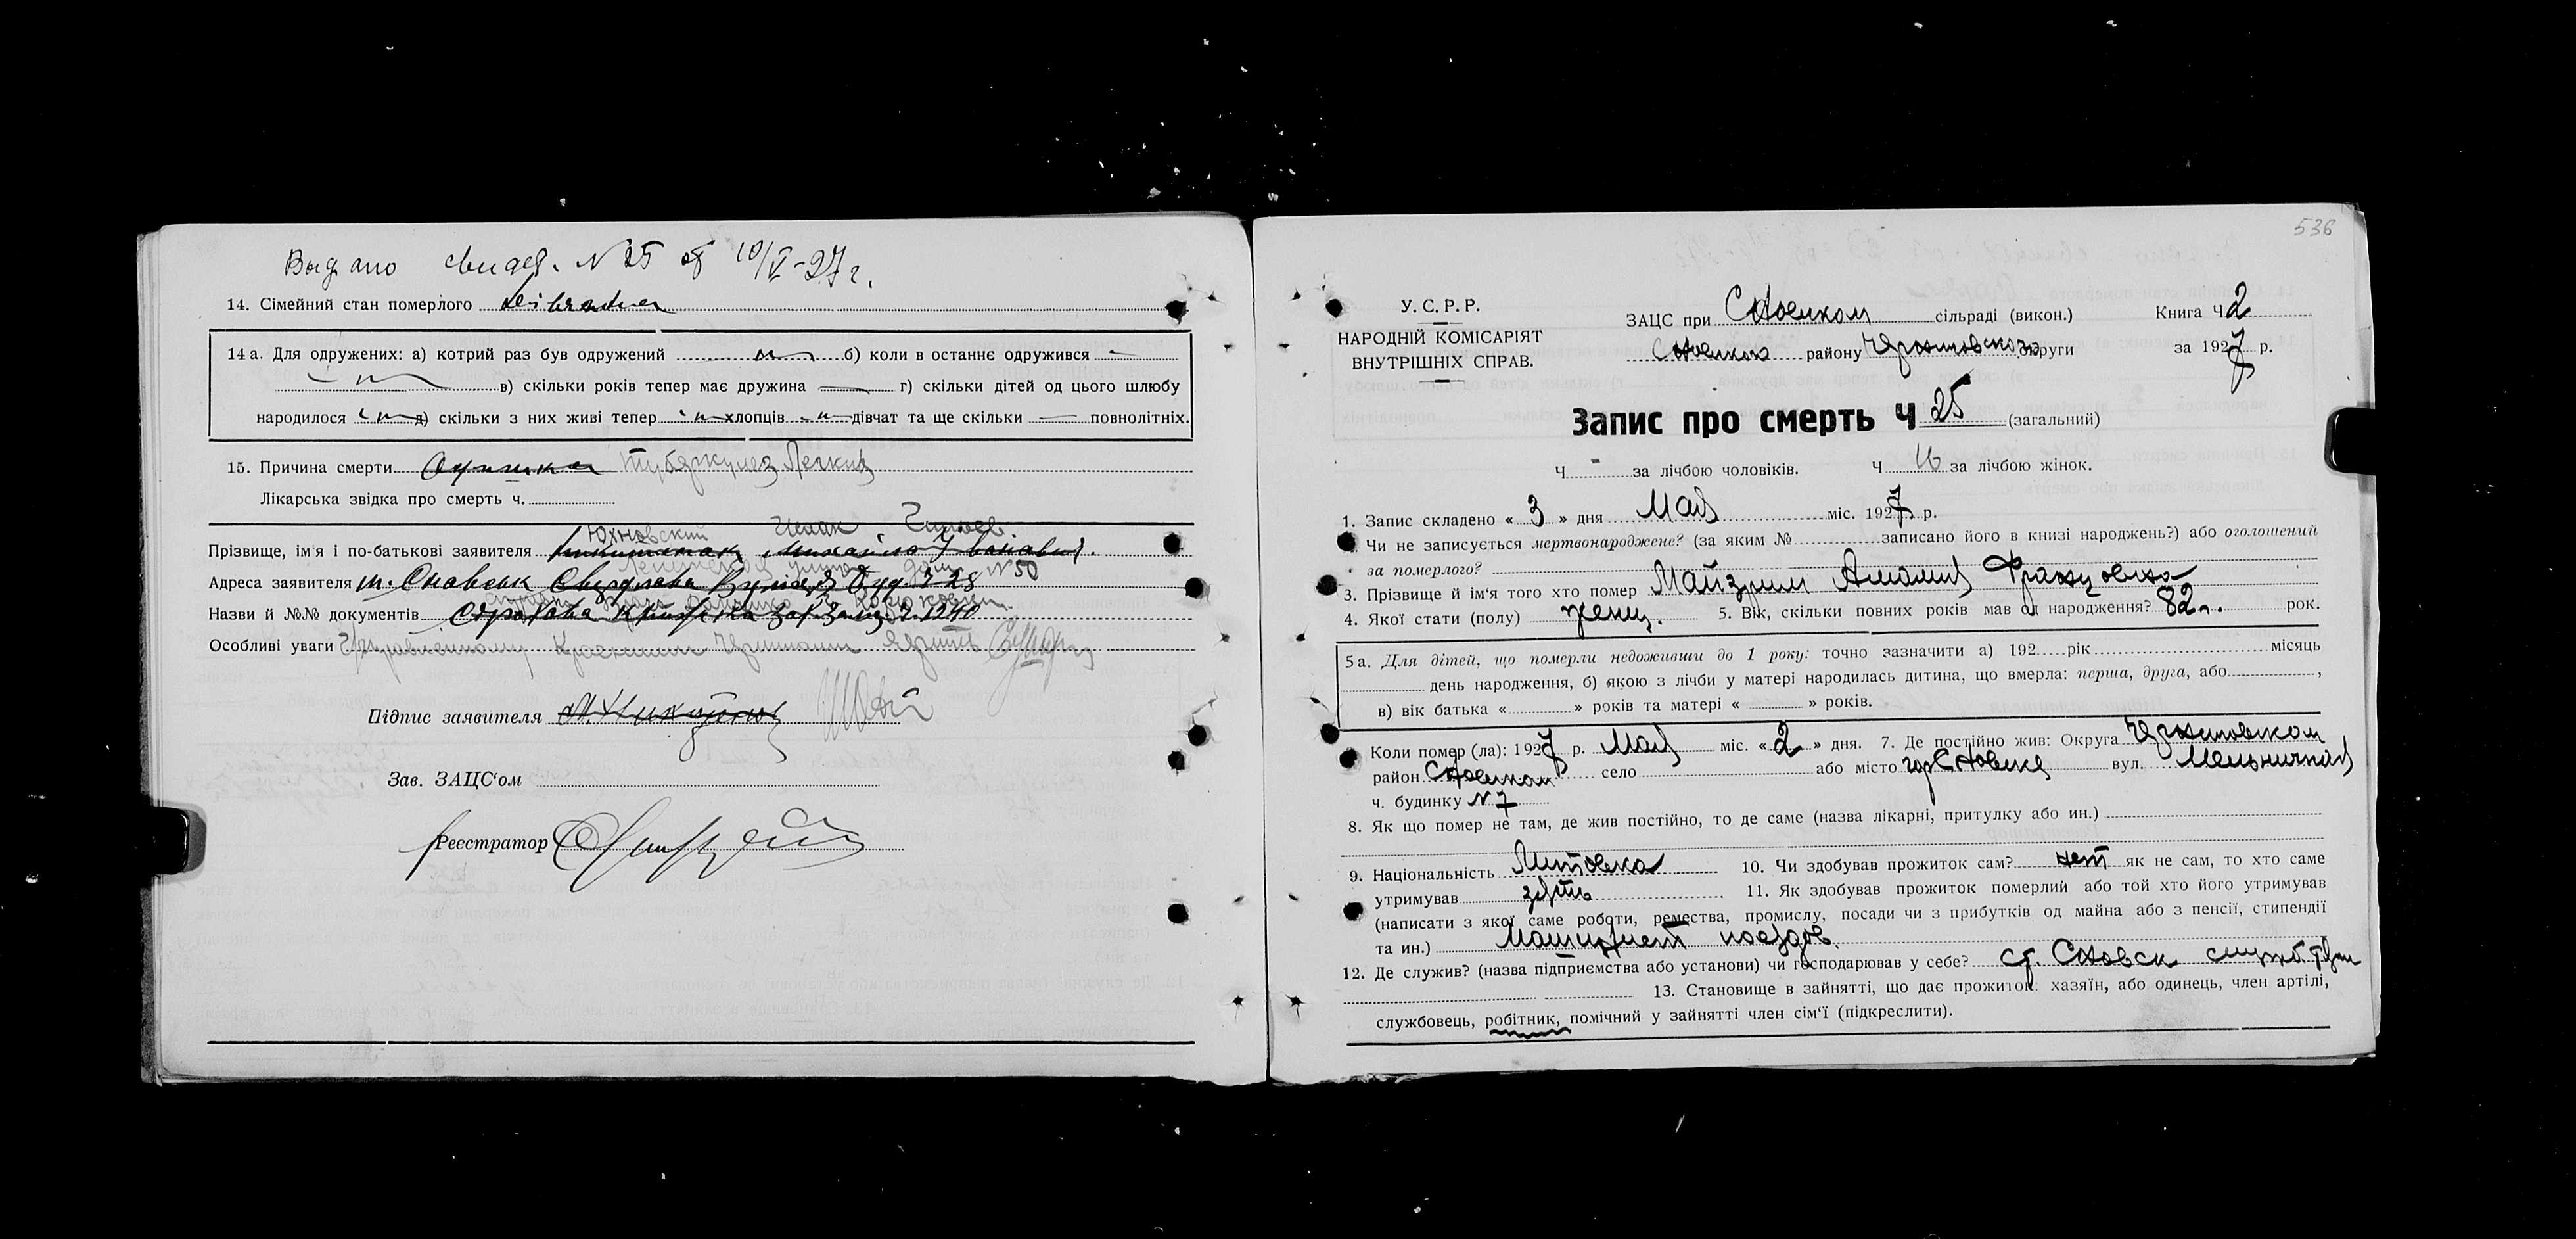 Выдано свидет. N 25 от 10/V-27 г.
14. Сімейний стан померлого
14 а. Для одружених: а) котрий раз був одружений б) коли в останнє одружився
в) скільки років тепер має дружина г) скільки дітей од цього шлюбу
народилося д) скільки з них живі тепер хлопців дівчат та ще скільки повнолітніх.
15. Причина смерти Туберкулез Легких
Лікарська звідка про смерть ч.
Юхновский Исаак
Прізвище, ім'я і по-батькові заявителя
Ленинская улица дом N 50
Адреса заявителя м. Сновськ Свердлова Вулиця Буд. ч 28
Назви й №№ документів
Особливі уваги
Підпис заявителя
Зав. ЗАЦС'ом
Реестратор
536
У. С. Р. Р.
НАРОДНІЙ КОМІСАРІЯТ
ВНУТРІШНІХ СПРАВ.
ЗАЦС при Сновском сільраді (викон.) Книга Ч 2
Сновском району Черниговского округи за 1927 р.
Запис про смерть Ч 25 (загальний)
Ч - за лічбою чоловіків. Ч 16 за лічбою жінок.
1. Запис складено « 3 » дня Мая міс. 1927 р.
Чи не записується мертвонароджене? (за яким № записано його в книзі народжень?) або оголошений
за померлого?
3. Прізвище й ім'я того хто помер Майзрим Амалия Францовна
4. Якої стати (полу) женщ. 5. Вік, скільки повних років мав од народження? 82 рок.
5 а. Для дітей, що померли недоживши до 1 року: точно зазначити а) 192 рік місяць
день народження, б) якою з лічби у матері народилась дитина, що вмерла: перша, друга, або ,
в) вік батька « » років та матері « » років.
Коли помер (ла): 1927 р. Мая міс. « 2 » дня. 7. Де постійно жив: Округа Черниговском
район Сновском село або місто гор Сновске вул. Мельничная
ч. будинку N 7
8. Як що помер не там, де жив постійно, то де саме (назва лікарні, притулку або ин.)
9. Національність Литовка 10. Чи здобував прожиток сам? нет як не сам, то хто саме
утримував зять 11. Як здобував прожиток померлий або той хто його утримував
(написати з якої саме роботи, ремества, промислу, посади чи з прибутків од майна або з пенсії, стипендії
та ин.) Машинист поездов.
12. Де служив? (назва підприємства або установи) чи господарював у себе? ст. Сновск служб. тяги
13. Становище в зайнятті, що дає прожиток: хазяїн, або одинець, член артілі,
службовець, робітник, помічний у зайнятті член сім'ї (підкреслити).